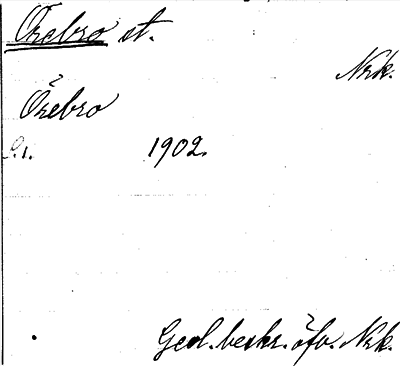 Örebro st.
Nrk.
Örebro
S. 1. 1902.
Geol. beskr. öfv. Nrk.